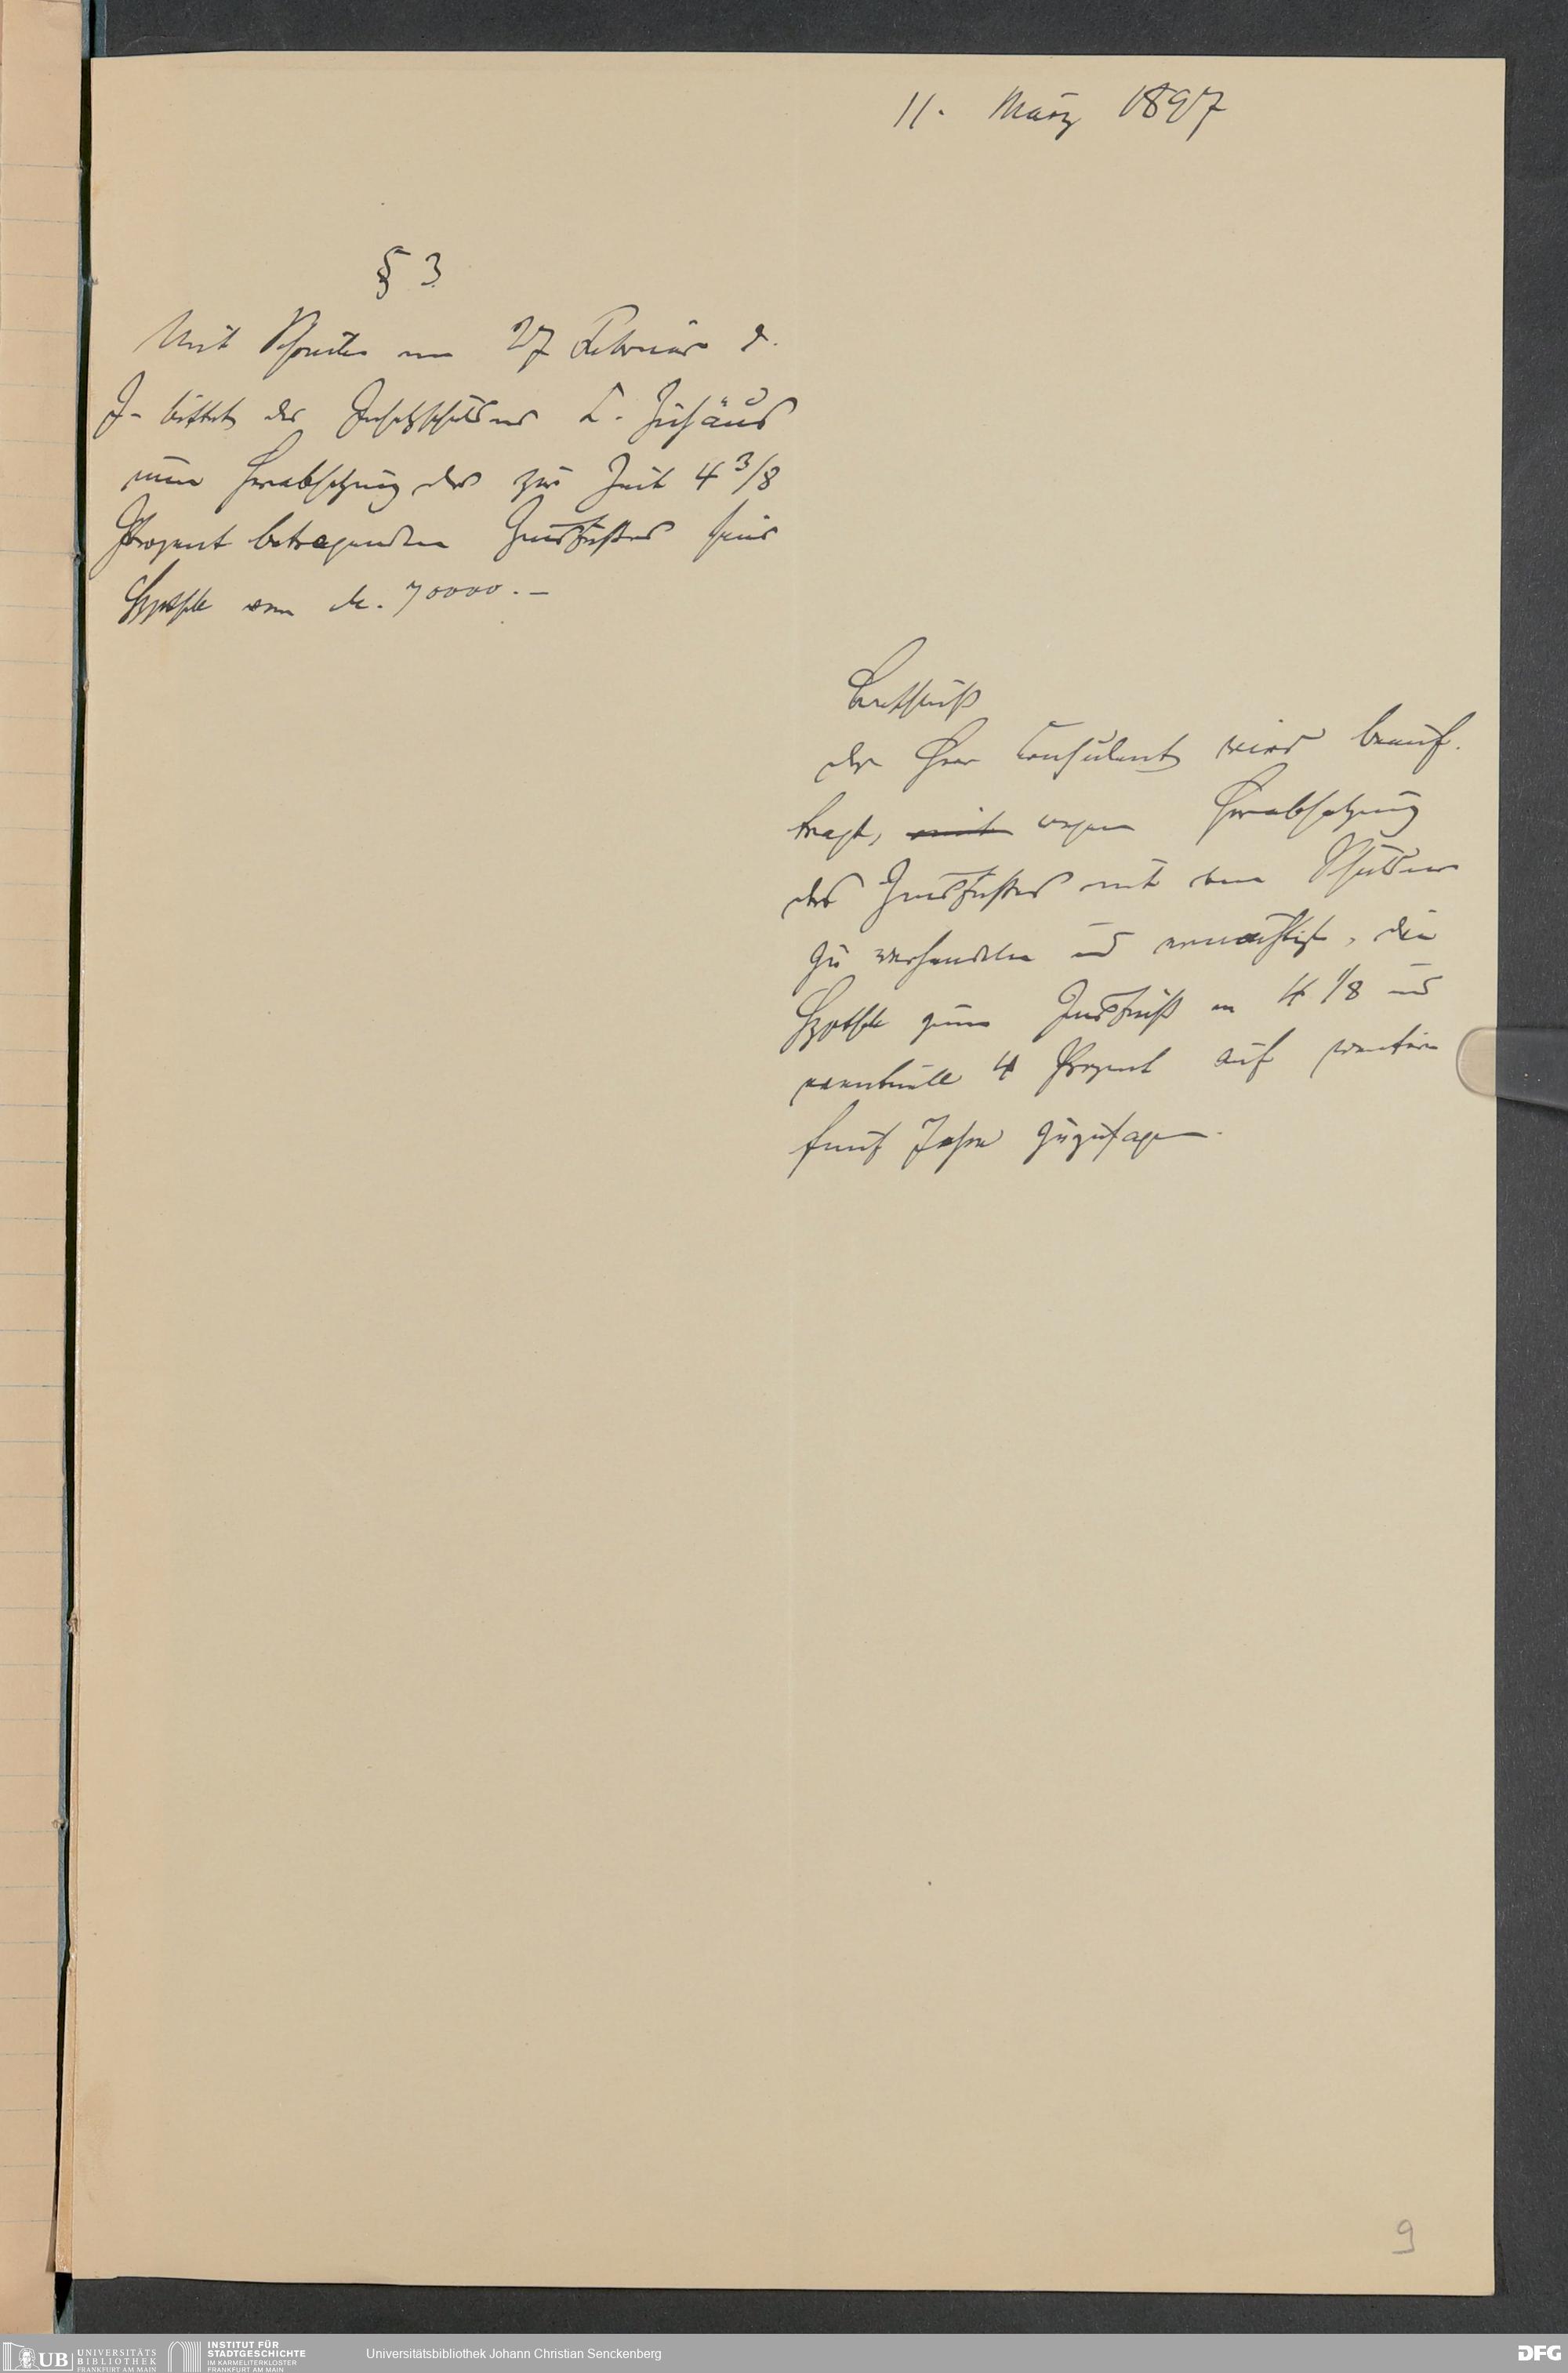 11. März 1897
§ 3
Mit Schreiben vom 27 Februar d.
J. bittet der Insatzschuldner L.
um Herabsetzung des zur Zeit 4 3/8
Prozent betragenden Zinsfußes seiner
Hypothek von M. 70000.-
Beschluß
der Herr Consulent wird beauf-
tragt, mit wegen Herabsetzung
des Zinsfußes mit dem Schuldner
zu verhandeln und ermächtigt, die
Hypothek zum Zinsfuß von 4 1/8 und
eventuell 4 Prozent auf weitere
fünf Jahre zuzusagen.
9
UB UNIVERSITÄTS
BIBLIOTHEK
FRANKFURT AM MAIN
INSTITUT FÜR
STADTGESCHICHTE
IM KARMELITERKLOSTER
FRANKFURT AM MAIN
Universitätsbibliothek Johann Christian Senckenberg
DFG